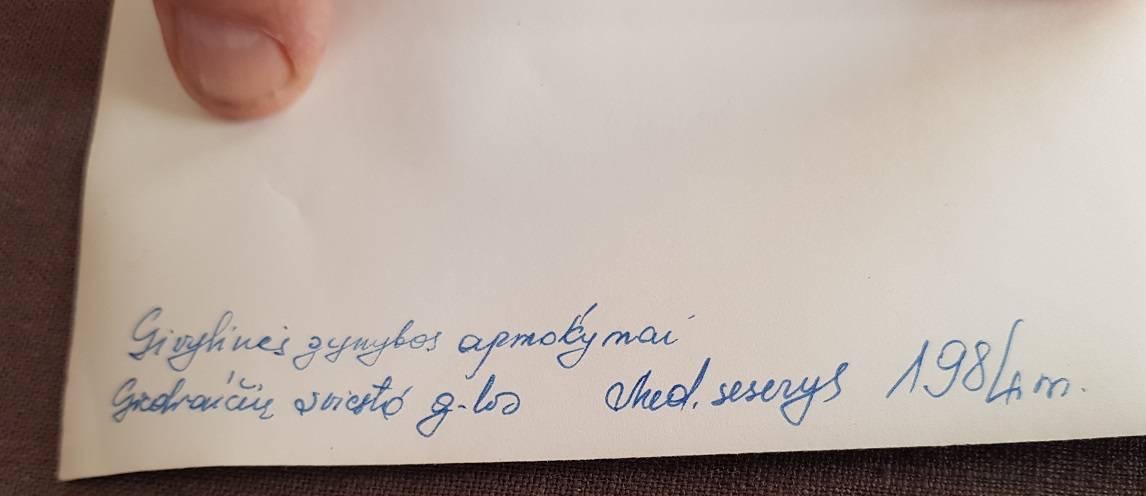 Civylinės gynybos apmokymai
Giedraičių miesto g-los Med. seserys 1984 m.